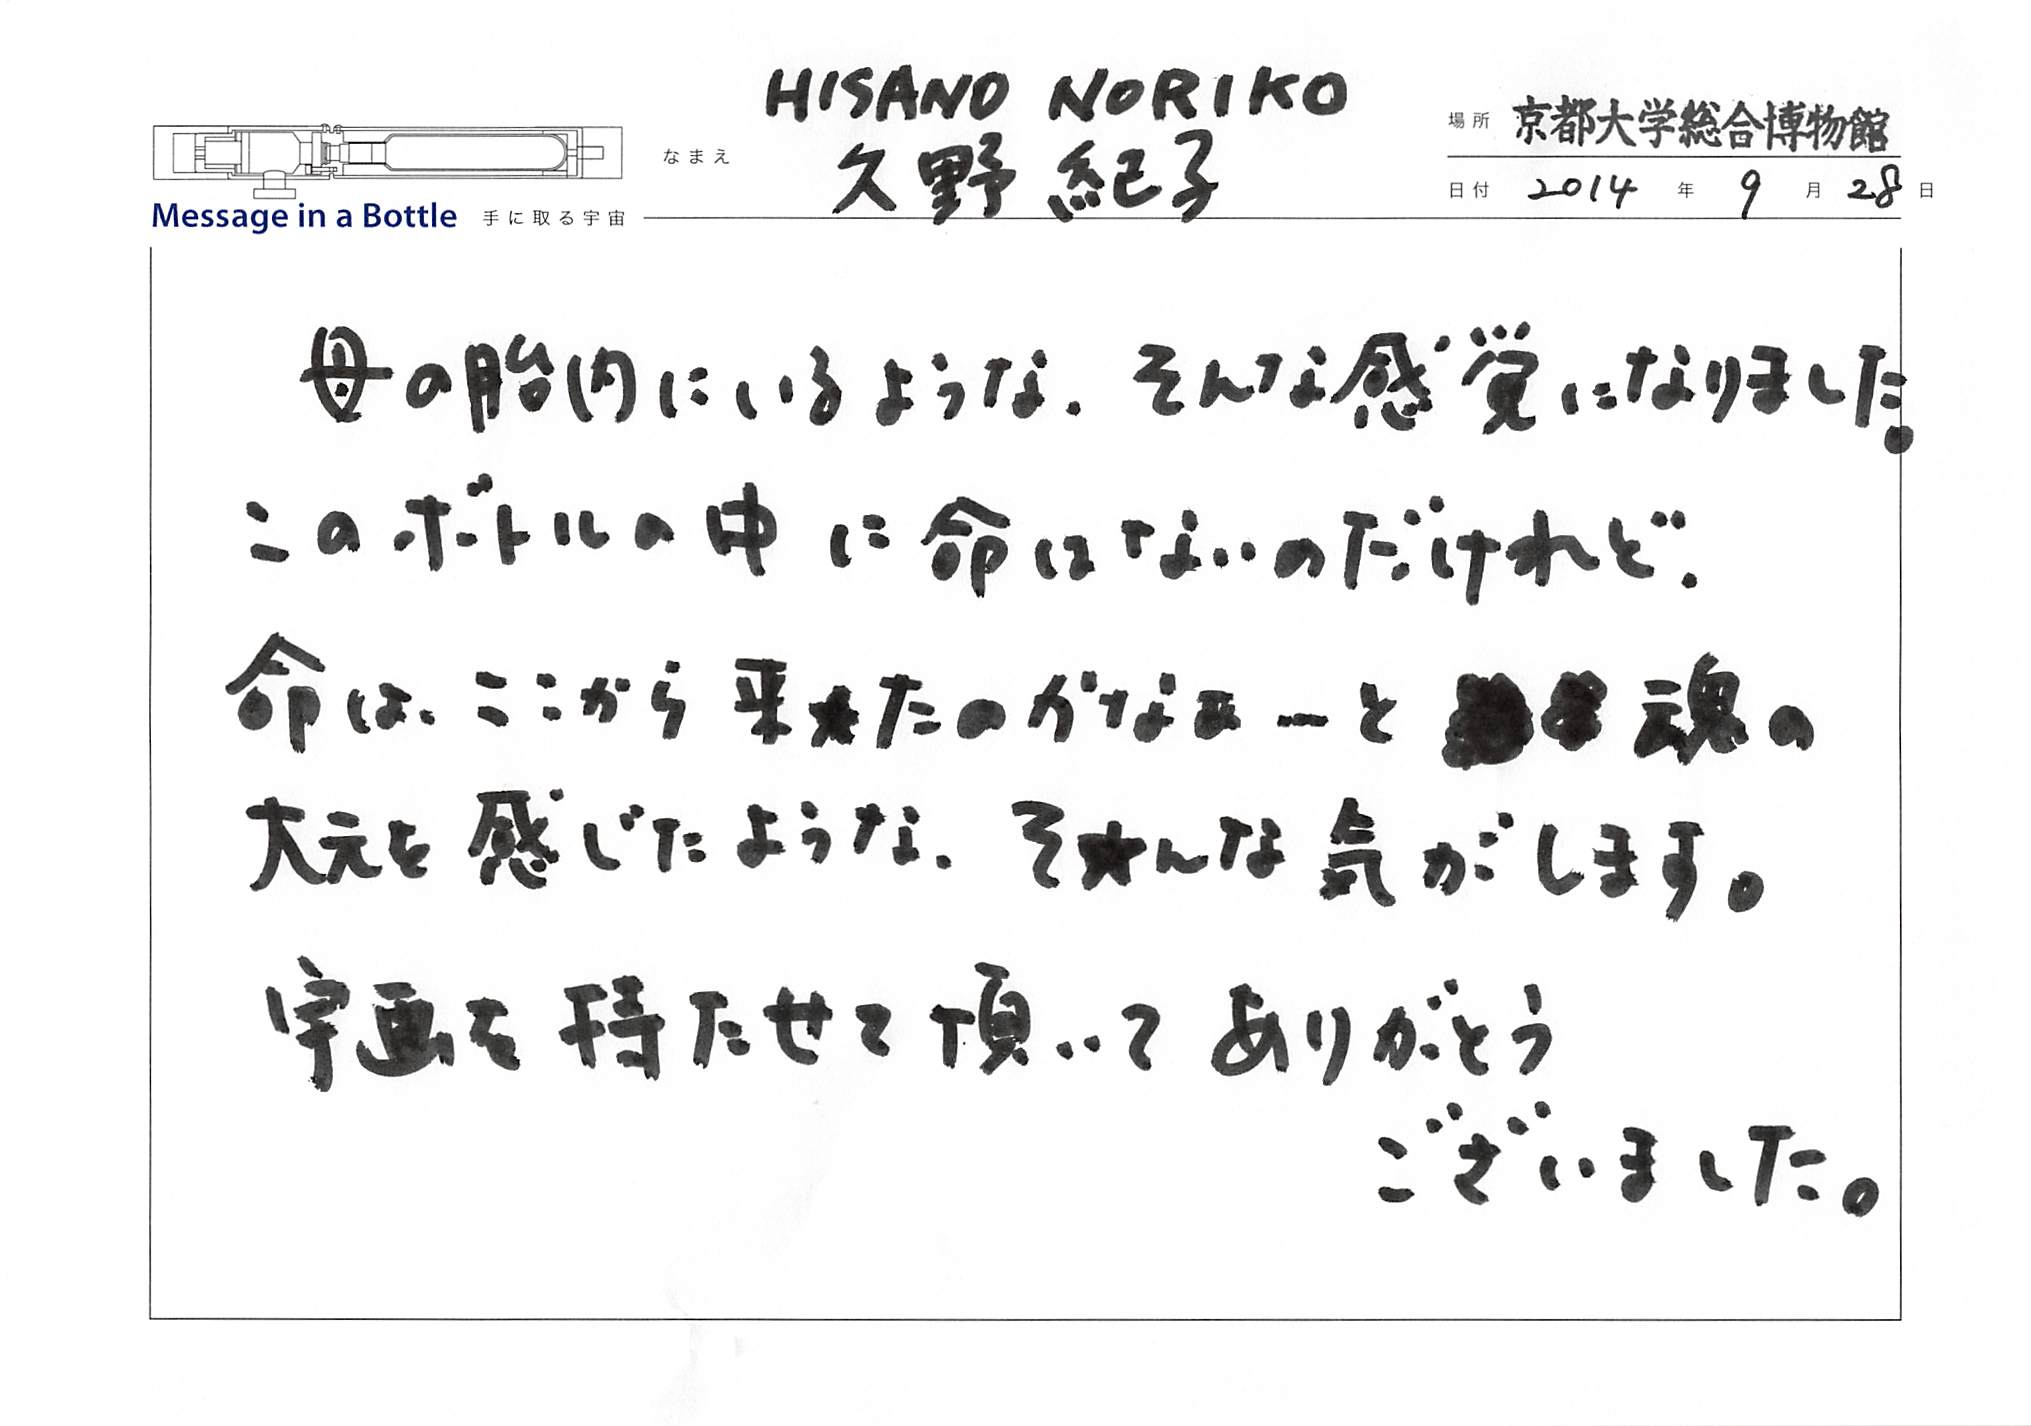 HISANO NORIKO
なまえ 久野 紀子
場所 京都大学総合博物館
日付 2014 年 9 月 28 日
Message in a Bottle 手に取る宇宙
母の胎内にいるような、そんな感覚になりました。
このボトルの中に命はないのだけれど、
命は、ここから来たのかなぁーと 魂の
大元を感じたような、そんな気がします。
宇画を持たせて頂いてありがとう
ございました。